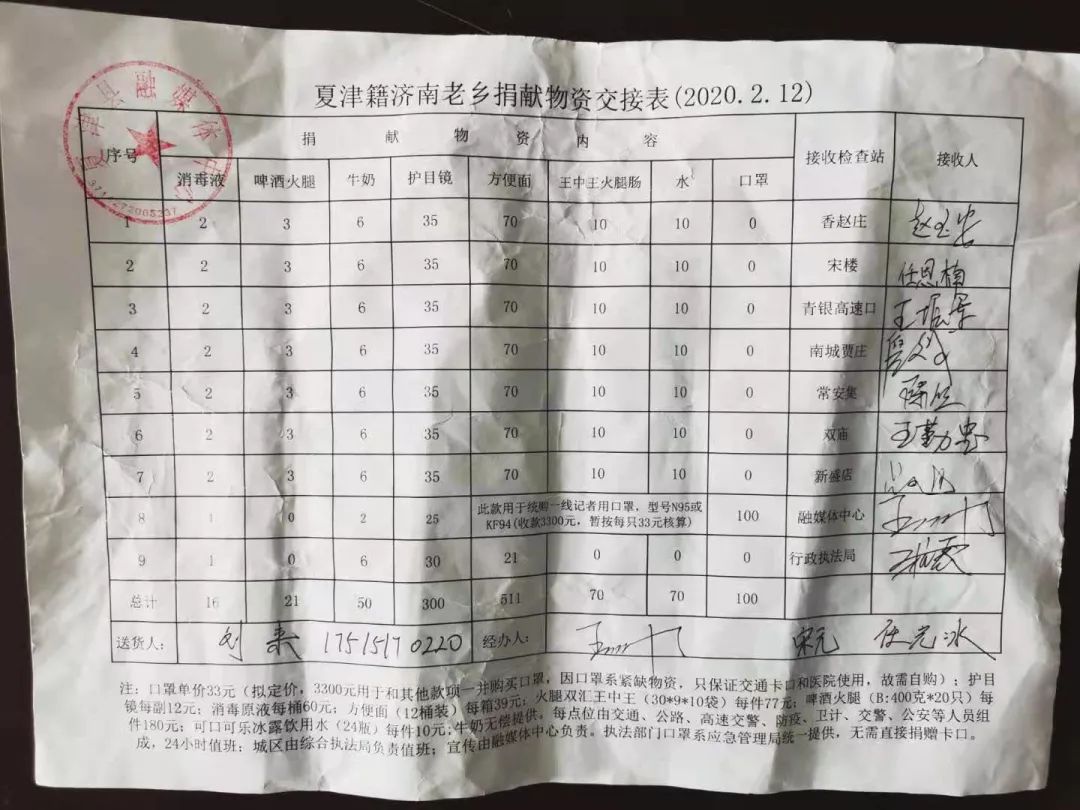 夏津籍济南老乡捐献物资交接表(2020.2.12)
序号 捐献物资内容 接收检查站 接收人
消毒液 啤酒火腿 牛奶 护目镜 方便面 王中王火腿肠 水 口罩
1 2 3 6 35 70 10 10 0 香赵庄
2 2 3 6 35 70 10 10 0 宋楼 任恩楠
3 2 3 6 35 70 10 10 0 青银高速口
4 2 3 6 35 70 10 10 0 南城贾庄
5 2 3 6 35 70 10 10 0 常安集
6 2 3 6 35 70 10 10 0 双庙 王勤忠
7 2 3 6 35 70 10 10 0 新盛店
8 1 0 2 25 此款用于统购一线记者用口罩，型号N95或
KF94(收款3300元，暂按每只33元核算) 100 融媒体中心
9 1 0 6 30 21 0 0 0 行政执法局
总计 16 21 50 300 511 70 70 100
送货人： 刘来 17515170220 经办人： 宋元 任光冰
注：口罩单价33元（拟定价，3300元用于和其他款项一并购买口罩，因口罩系紧缺物资，只保证交通卡口和医院使用，故需自购）；护目
镜每副12元；消毒原液每桶60元；方便面（12桶装）每箱39元；火腿双汇王中王（30*9*10袋）每件77元；啤酒火腿（B:400克*20只）每
件180元；可口可乐冰露饮用水（24瓶）每件10元；牛奶无偿提供。每点位由交通、公路、高速交警、防疫、卫计、交警、公安等人员组
成，24小时值班；城区由综合执法局负责值班；宣传由融媒体中心负责。执法部门口罩系应急管理局统一提供，无需直接捐赠卡口。
夏津县融媒体中心